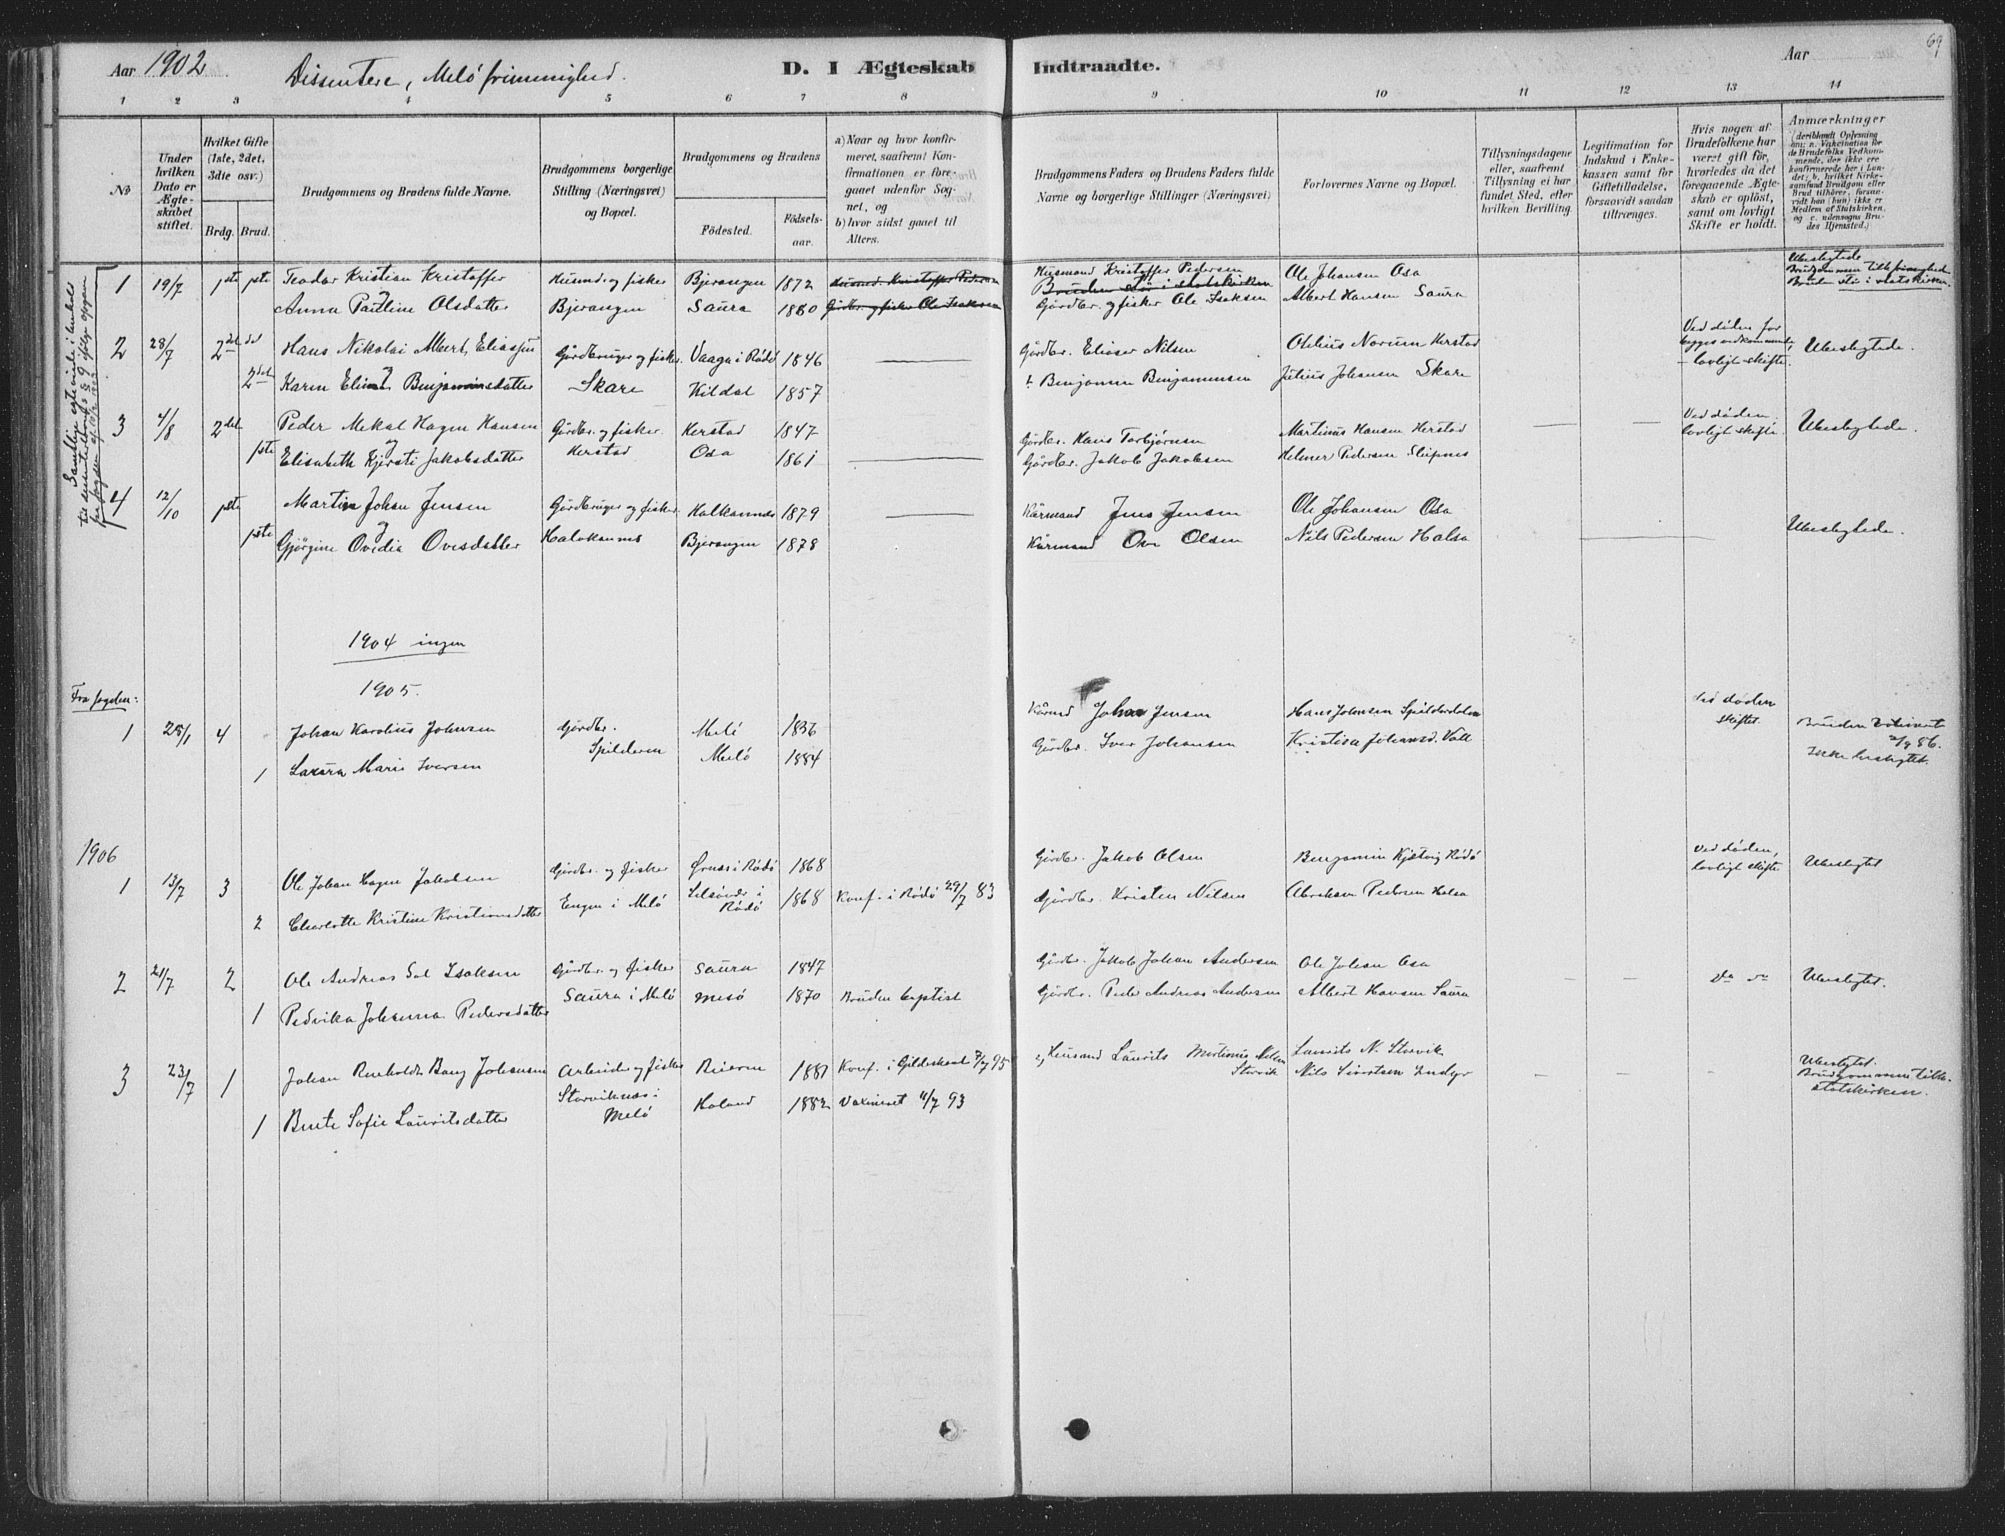 69
Aar 1902
Dissentere, Melö frimenighed.
D. I Ægteskab Indtraadte.
Aar
1 2 3 4 5 6 7 8 9 10 11 12 13 14
No
Under hvilken Dato er Ægteskabet stiftet.
Hvilket Gifte (1ste, 2det, 3die osv.)
Brdg. Brud.
Brudgommens og Brudens fulde Navne.
Brudgommens borgerlige Stilling (Næringsvei) og Bopæl.
Brudgommens og Brudens
Födested.
Födselsaar.
a) Naar og hvor konfirmeret, saafremt Konfirmationen er foregaaet udenfor Sognet, og
b) hvor sidst gaaet til Alters.
Brudgommens Faders og Brudens Faders fulde Navne og borgerlige Stillinger (Næringsvei)
Forlovernes Navne og Bopæl.
Tillysningsdagene eller, saafremt Tillysning ei har fundet Sted, efter hvilken Bevilling.
Legitimation for Indskud i Enkekassen samt for Giftetilladelse, forsaavidt saadan tiltrænges.
Hvis nogen af Brudefolkene har været gift för, hvorledes da det foregaaende Ægteskab er oplöst, samt om lovligt Skifte er holdt.
Anmærkninger
(deriblandt Oplysning om: a. Vakcination for de Brudefolks Vedkommende, der ikke ere konfirmerede her i Landet; b. hvilket Kirkesamfund Brudgom eller Brud tilhörer, forsaavidt han (hun) ikke er Medlem af Statskirken, og c. udensogns Brudes Hjemsted.)
1 19/7 1ste 1ste Teodor Kristian Kristoffer Husmd. og fisker Bjerangen 1872 Husmd. Kristoffer Pedersen Husmand Kristoffer Pedersen Ole Johansen Osa Ubeslegtede
Bruden står i statskirken Brudgommen tilh frimenighed
Anna Pauline Olsdatter Bjerangen Saura 1880 Gårdbr. og fisker Ole Isaksen Gårdbr. og fisker Ole Isaksen Albert Hansen Saura Bruden står i statskirken
2 28/7 2det Hans Nikolai Albert Eliassen Gårdbruger og fisker Vaaga i Rödö 1846 Gårdbr. Elieser Nilsen Otelius Norum Herstad Ved döden for begges vedkommende, lovligt skifte. Ubeslegtede.
2det Karen Benjaminsdatter Skare Kildal 1857 Benjamin Benjaminsen Julius Johansen Skare
3 4/8 2det Peder Mekal Hagen Hansen Gårdbr. og fisker Herstad 1847 Gårdbr. Hans Torbjörnsen Martinus Hansen Herstad Ved döden, lovligt skifte. Ubeslegtede.
1ste Elisabeth Kjersti Jakobsdatter Herstad Osa 1861 Gårdbr. Jakob Jakobsen Helmer Pedersen Sleipnes
4 12/10 1ste Martin Johan Jensen Gårdbruger og fisker 1879 Kårmand Jens Jensen Ole Johansen Osa Ubeslegtede.
1ste Gjörgine Ovidia Ovesdatter Bjerangen 1878 Kårmand Ove Olsen Nils Pedersen Halsa
1904 ingen
1905.
Fra fogden:
1 28/1 4 Johan Karolius Johnsen gårdbr. Melö 1836 Kårmd Johan Jensen Hans Johnsen Spilderdalen ved döden skiftet. Bruden
1 Laura Marie Iversen Spilderen Melö 1884 Gårdbr. Iver Johansen Kristian Johansd. Vall 2/9 86.
Ikke beslegtet.
1906
1 13/7 3 Ole Johan Hagen Jakobsen Gårdbr. og fisker Örnes i Rödö 1868 Gårdbr. Jakob Olsen Benjamin Kjelvig Rödö Ved döden, lovligt skifte Ubeslegtet
2 Charlotte Kristine Kristiansdatter Engen i Melö Rödö 1868 Konf. i Rödö 29/7 83 Gårdbr. Kristen Nilsen Abraham Pedersen Halsa
2 21/7 2 Ole Andreas Sal Isaksen Gårdbr. og fisker Saura 1847 Gårdbr. Jakob Johan Andersen Ole Johan Osa Do do Ubeslegtet.
1 Pedrika Johanna Pedersdatter Saura i Melö Mesö 1870 Bruden baptist Gårdbr. Peder Andreas Andersen Albert Hansen Saura
3 23/7 1 Johan Renholdt Bang Johansen Arbeider og fisker Beiarn 1881 Konf. i Gildeskaal 7/7 95 Husmand Laurits Martinus Nilsen Storvik Laurits N. Storvik Ubeslegtet.
Brudgommen tilh. statskirken.
1 Berte Sofie Lauritsdatter Storviknes i Melö Holand 1882 Vaxineret 11/7 93 Nils Sivertsen